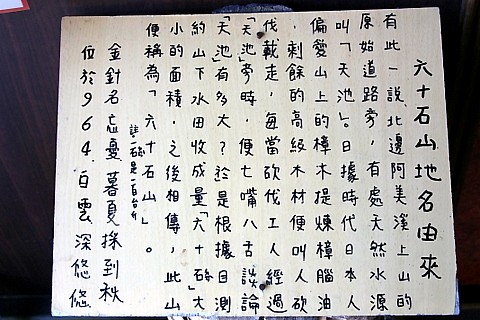 六十石山地名由來
有此一說，北邊阿美溪上山的
原始道路旁，有處天然水源
叫「天池」。日據時代日本人
偏愛山上的樟木提煉樟腦油
，剩餘的高級木材便叫人砍
伐載走，每當砍伐工人經過
「天池」旁時，便七嘴八舌談論
「天池」有多大？於是根據目測
約山下水田收成量「六十」大
小的面積，之後相傳，此山
便稱為「六十石山」。
註：一是一百台斤
金針名忘憂暮夏採到秋
位於964.白雲深悠悠